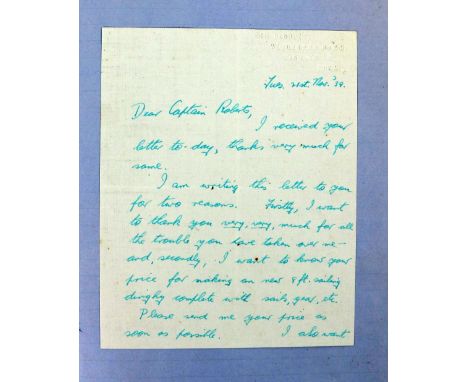 Tues. 21st. Nov. '39.
Dear Captain Roberts,
I received your
letter to-day, thanks very much for
same.
I am writing this letter to you
for two reasons. Firstly, I want
to thank you very, very, much for all
the trouble you have taken over me -
and, secondly, I want to know your
price for making an new 9 ft. sailing
dinghy complete with sails, gear, etc.
Please send me your price as
soon as possible. I also want